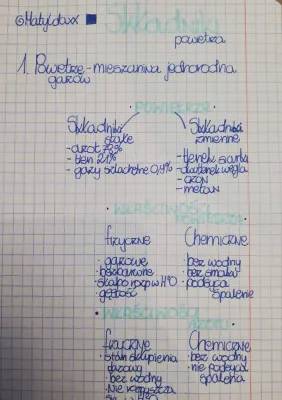 @Matyldaxx
Składniki
powietrza
1. Powietrze - mieszanina jednorodna
gazów
POWIETRZE
Składniki stałe
- azot 78%
- tlen 21%
- gazy szlachetne 0,9%
Składniki zmienne
- tlenek siarki
- dwutlenek węgla
- ozon
- metan
WŁAŚCIWOŚCI
POWIETRZA
fizyczne
• gazowe
• bezbarwne
• słabo rozp w H²O
• gęstość
Chemiczne
• bez wodny
• bez smaku
• podtrzy
spalanie
WŁAŚCIWOŚCI
AZOTU
fizyczne
• stan skupienia
gazowy
• bez wodny
• Nie rozpuszcza
Chemiczne
• bez wodny
• nie podtrzy
spalania